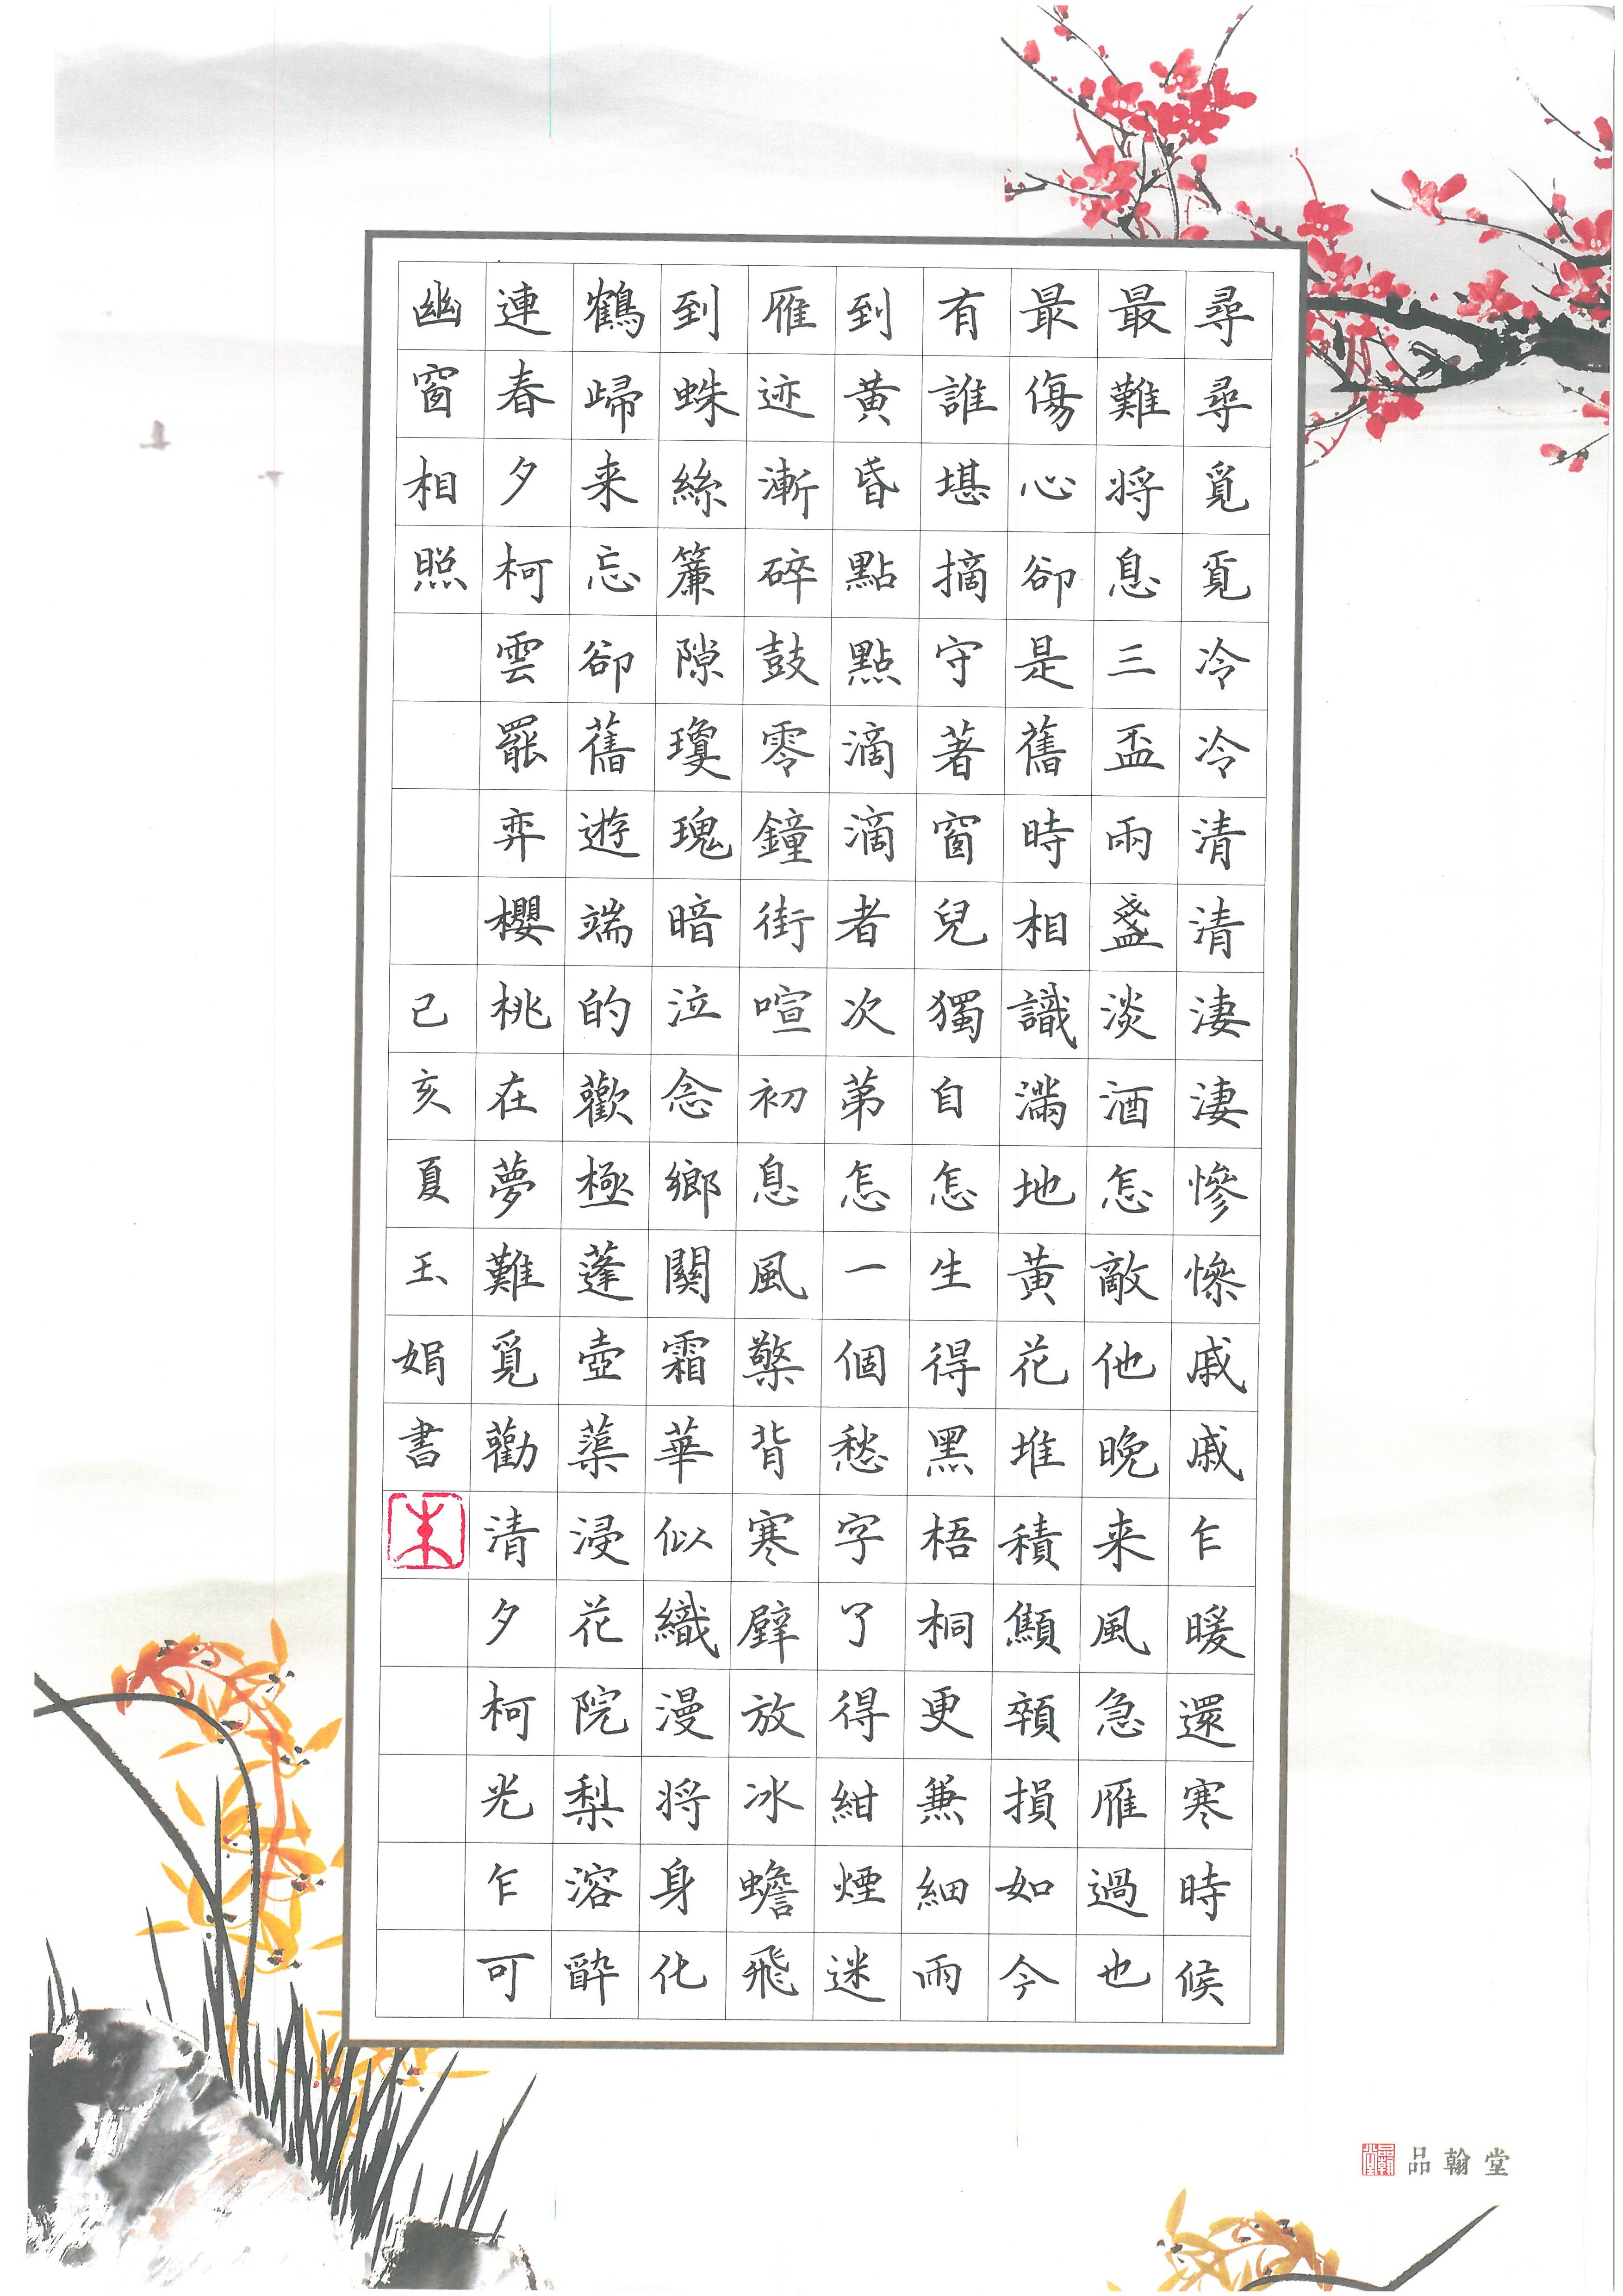 尋尋覓覓冷冷清清淒淒慘慘戚戚乍暖還寒時候
最難將息三盃兩盞淡酒怎敵他晚来風急雁過也
最傷心卻是舊時相識滿地黃花堆積顦顇損如今
有誰堪摘守著窗兒獨自怎生得黑梧桐更兼細雨
到黃昏點點滴滴者次第怎一個愁字了得紺煙迷
雁迹漸碎鼓零鐘街喧初息風檠背寒壁放冰蟾飛
到蛛絲簾隙瓊瑰暗泣念鄉關霜華似織漫將身化
鶴歸来忘卻舊遊端的歡極蓬壺蕖浸花院梨溶醉
連春夕柯雲罷弈櫻桃在夢難覓勸清夕柯光乍可
幽窗相照
己亥夏玉娟書
朱
品翰堂